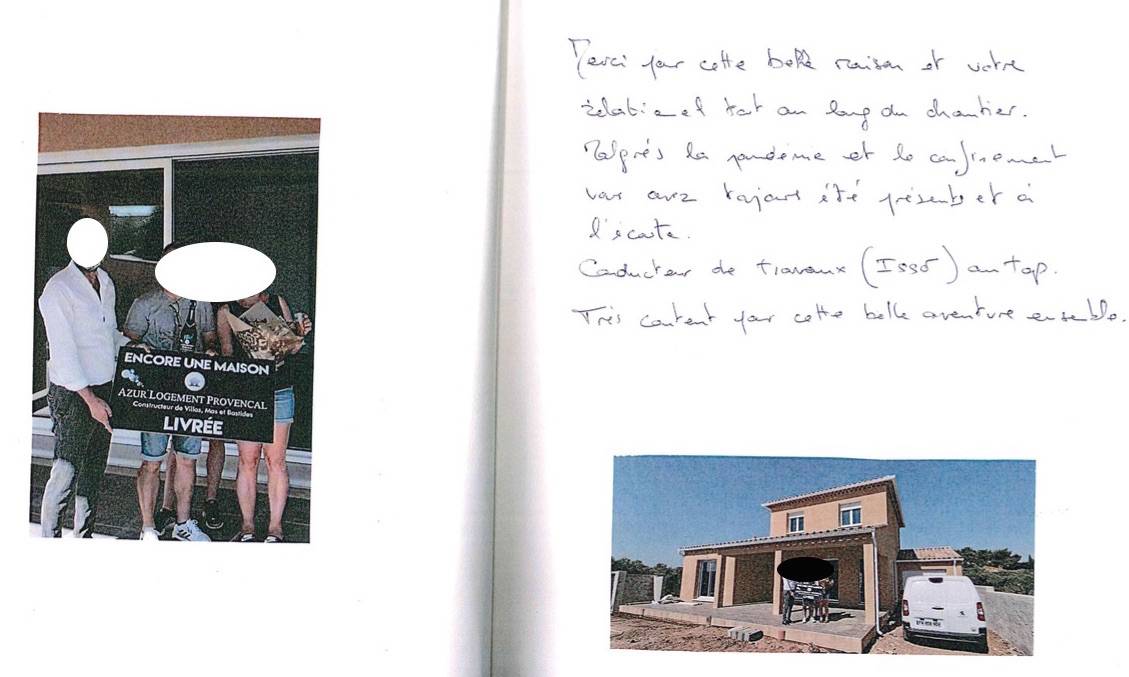 ENCORE UNE MAISON
AZUR LOGEMENT PROVENCAL
Constructeur de Villas, Mas et Bastides
LIVRÉE
Merci pour cette belle maison et votre
relationnel tout au long du chantier.
Malgrés la pandémie et le confinement
vous avez toujours été présents et à
l'écoute.
Conducteur de travaux (Issó) au top.
Très content pour cette belle aventure ensemble.